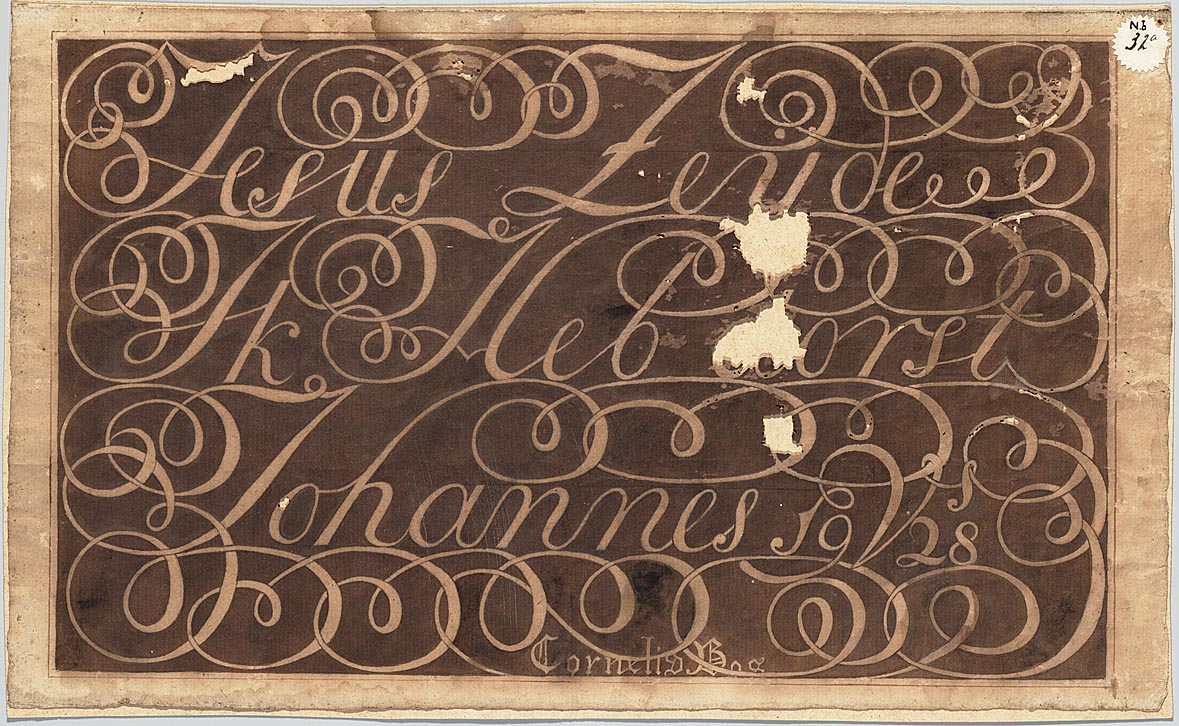 N.b
32a
Jesus Zeyde
Ik Heb Dorst
Johannes 19 Vs 28
Cornelis Bos